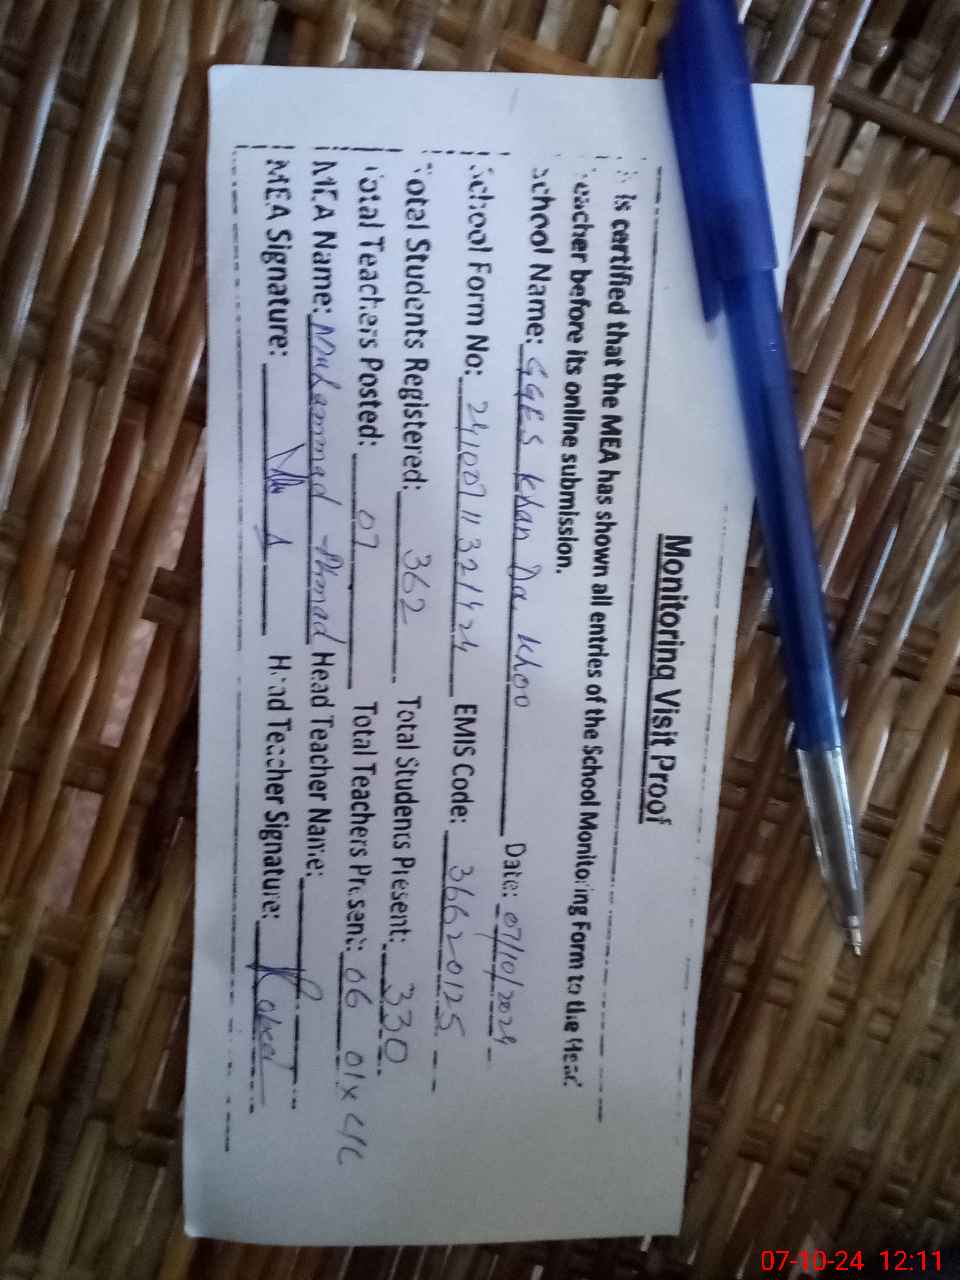 Monitoring Visit Proof
is certified that the MEA has shown all entries of the School Monitoring Form to the Head
Teacher before its online submission.
School Name: GGES Khan Da Khoo Date: 07/10/2024
School Form No: EMIS Code: 36620125
Total Students Registered: 362 Total Students Present: 330
Total Teachers Posted: 07 Total Teachers Present: 06 01x
MEA Name: Muhammad Ahmad Head Teacher Name:
MEA Signature: Head Teacher Signature:
07-10-24 12:11